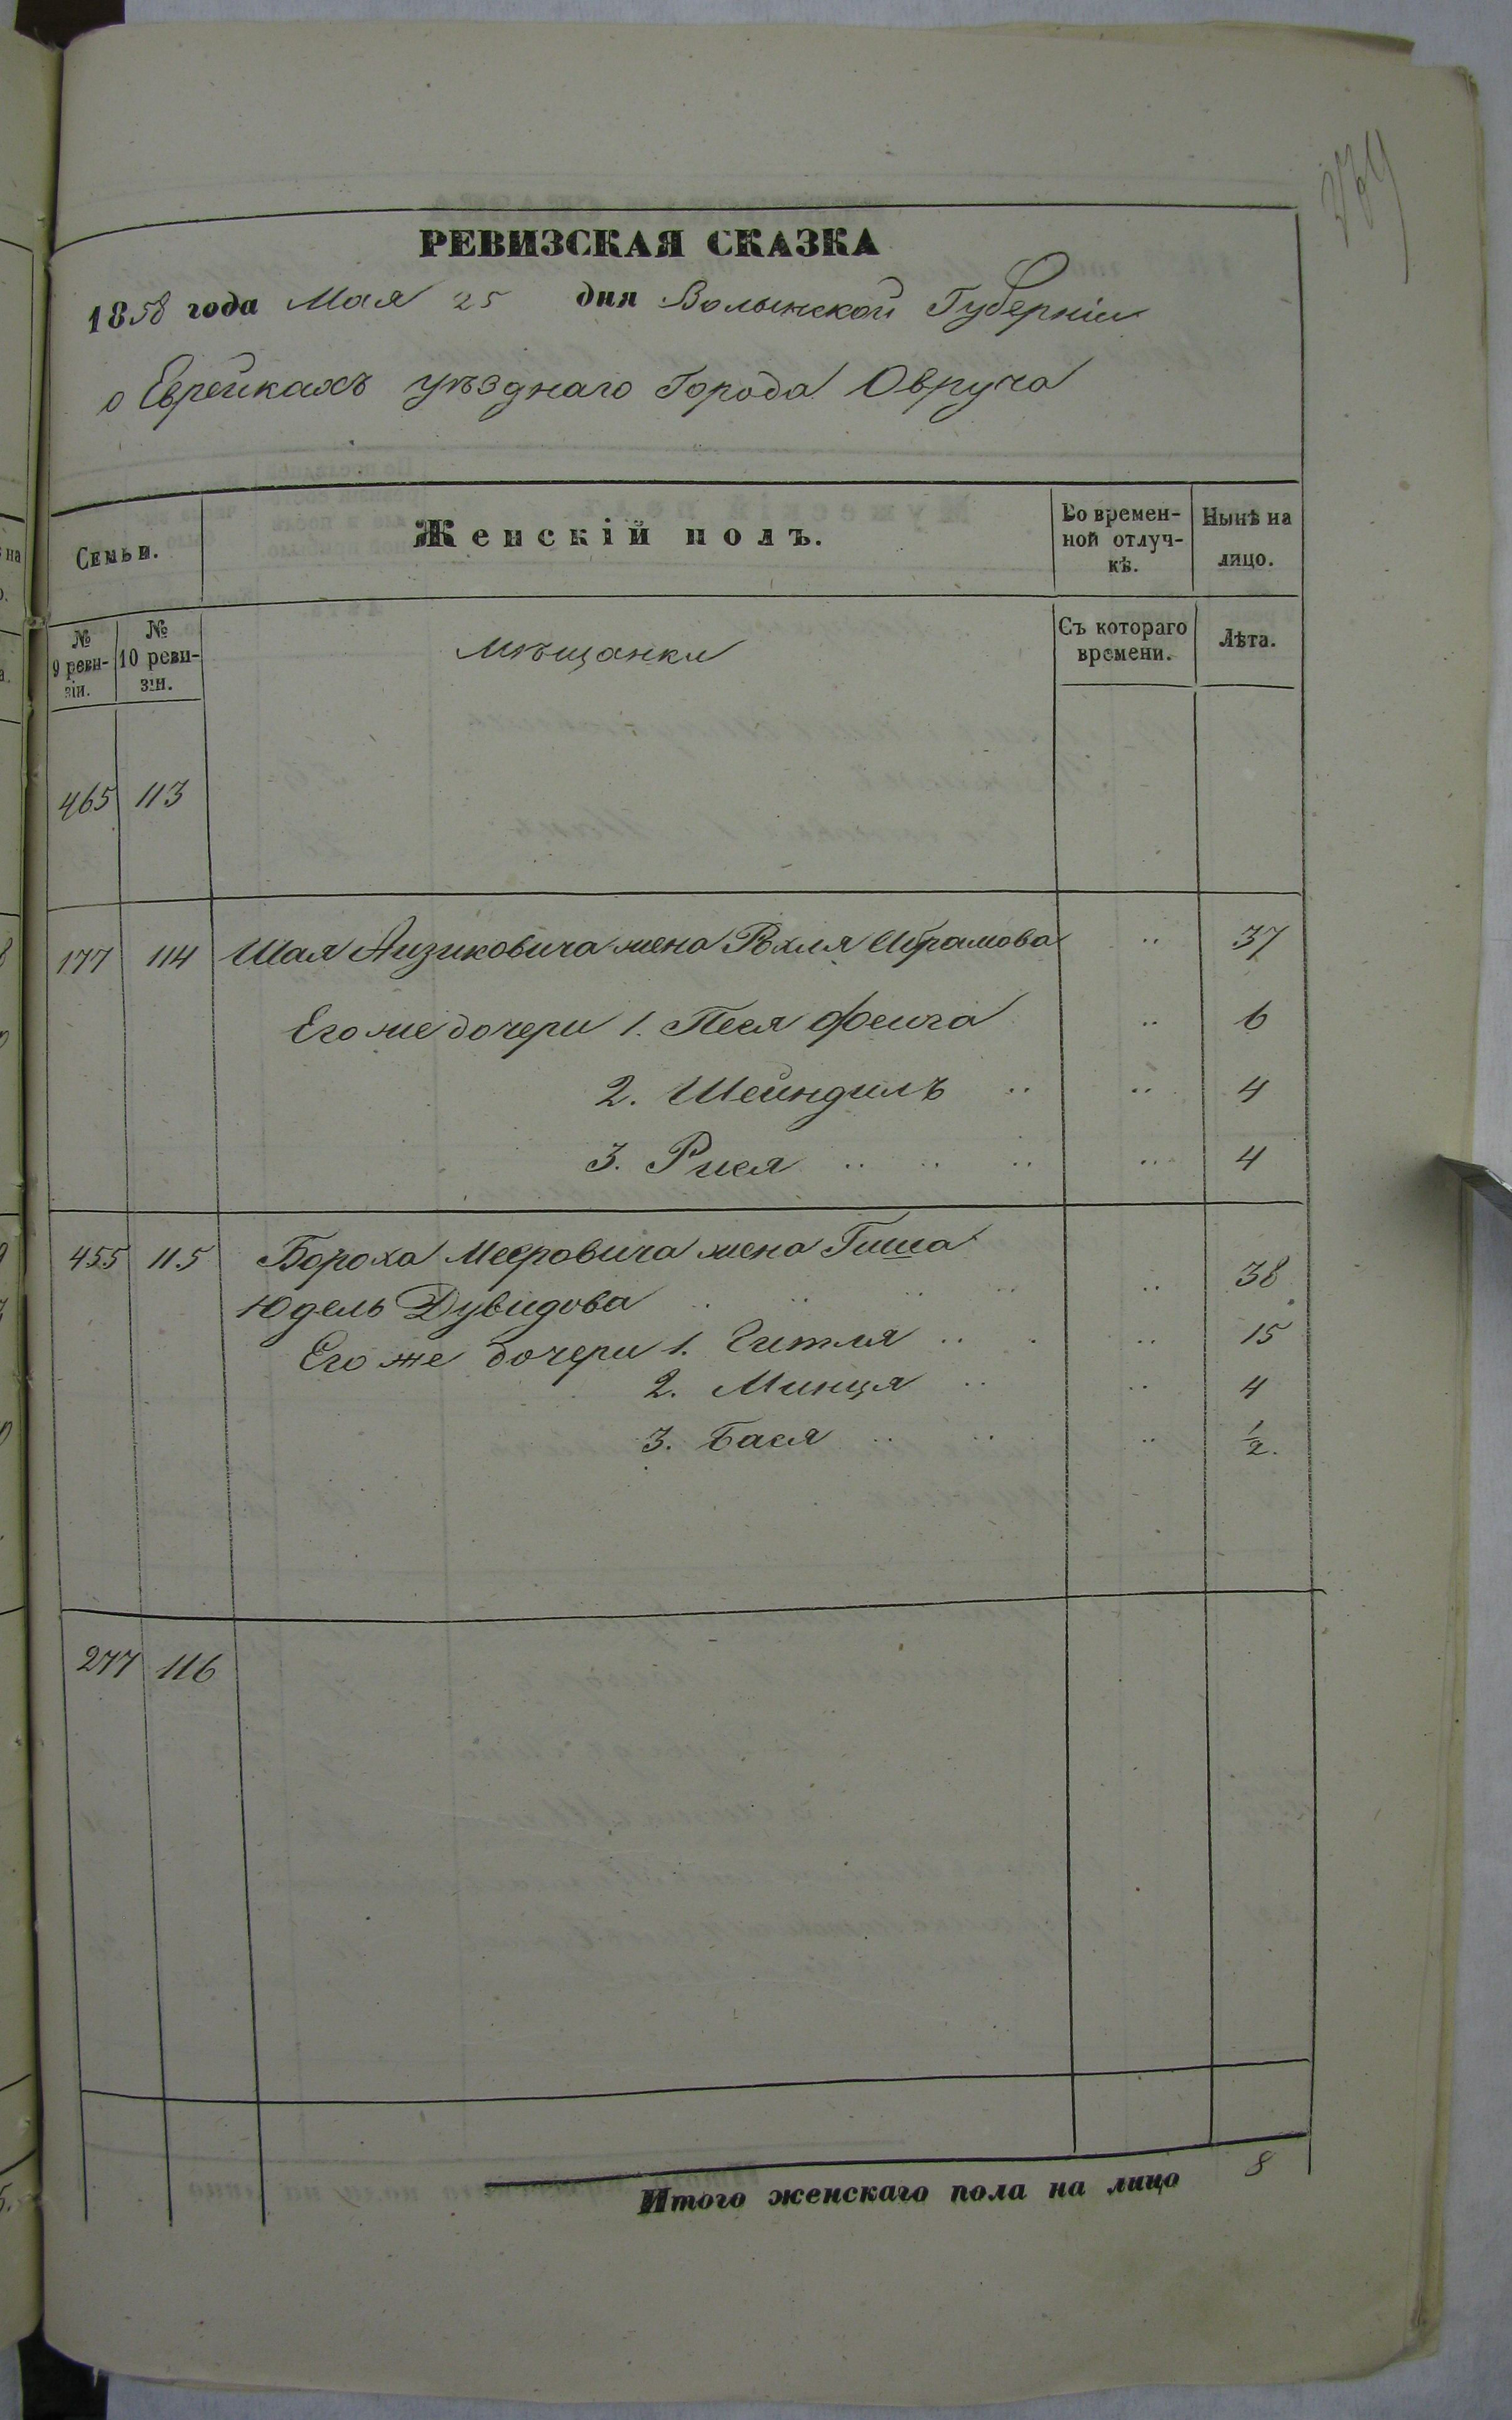 РЕВИЗСКАЯ СКАЗКА
1858 года Мая 25 дня Волынской Губерніи
о Еврейкахъ уѣзднаго Города Овруча
Семьи.
Женскій полъ.
Во времен-
ной отлуч-
кѣ.
Нынѣ на
лицо.
№
9 реви-
зіи.
№
10 реви-
зіи.
Мѣщанки
Съ котораго
времени.
Лѣта.
465 113
177 114 Шая Аизиковича жена Рохля Абрамова 37
Его же дочери 1. Песя Фейга 6
2. Шейндиль 4
3. Рися 4
455 115 Бороха Мееровича жена
Юдель Дувидова 38
Его же дочери 1. Гитля 15
2. Минця 4
3. Бася 1/2.
277 116
Итого женскаго пола на лицо 8